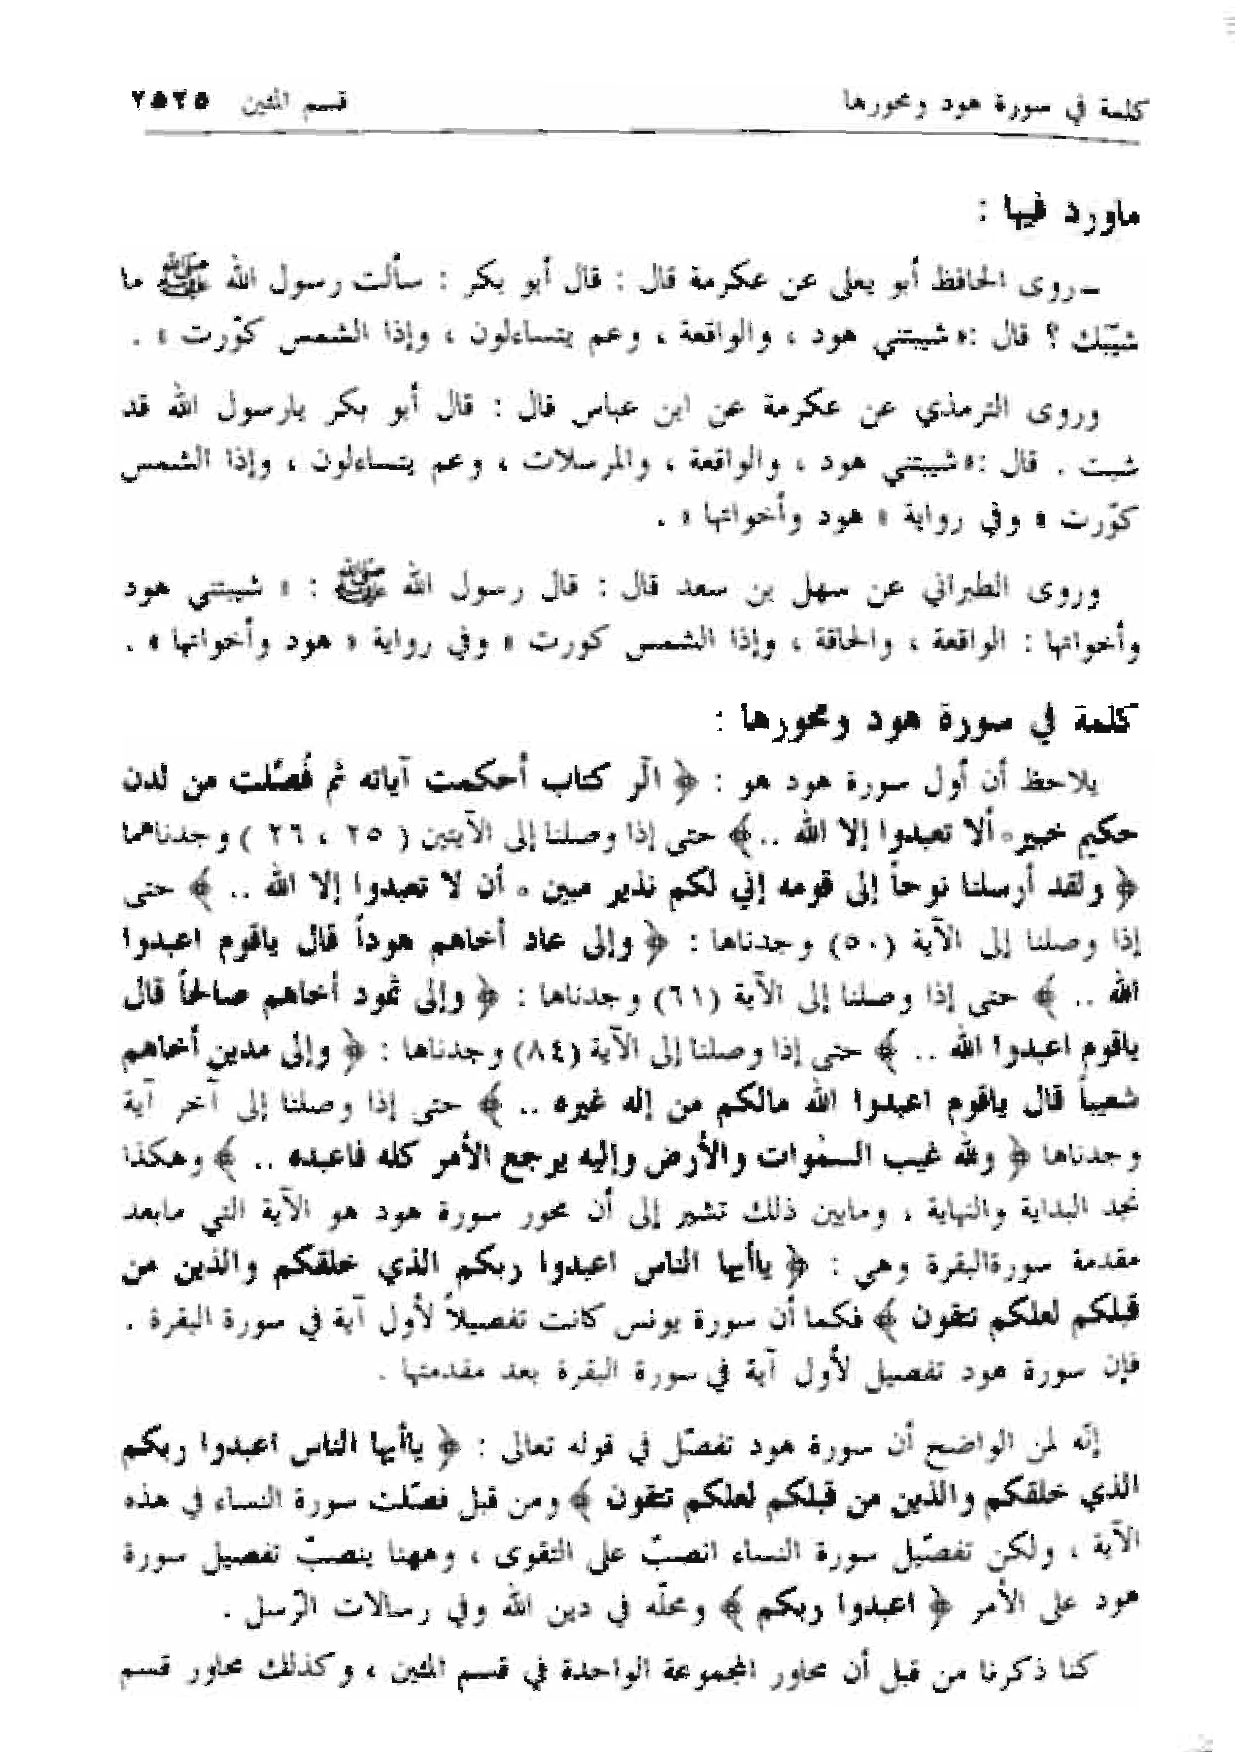 كلمة في سورة هود ومحورها
قسم المئين ٢٥٢٥
ماورد فيها :
ـ روى الحافظ أبو يعلى عن عكرمة قال : قال أبو بكر : سألت رسول الله ﷺ ما
شيّبك ؟ قال :« شيبتني هود ، والواقعة ، وعم يتساءلون ، وإذا الشمس كوّرت » .
وروى الترمذي عن عكرمة عن ابن عباس قال : قال أبو بكر يارسول الله قد
شبت . قال :« شيبتني هود ، والواقعة ، والمرسلات ، وعم يتساءلون ، وإذا الشمس
كوّرت » وفي رواية « هود وأخواتها » .
وروى الطبراني عن سهل بن سعد قال : قال رسول الله ﷺ : « شيبتني هود
وأخواتها : الواقعة ، والحاقة ، وإذا الشمس كورت » وفي رواية « هود وأخواتها » .
كلمة في سورة هود ومحورها :
يلاحظ أن أول سورة هود هو : ﴿ الٓر كتاب أحكمت آياته ثم فُصّلت من لدن
حكيم خبير ٥ ألا تعبدوا إلا الله .. ﴾ حتى إذا وصلنا إلى الآيتين ( ٢٥ ، ٢٦ ) وجدناهما
﴿ ولقد أرسلنا نوحاً إلى قومه إني لكم نذير مبين ٥ أن لا تعبدوا إلا الله .. ﴾ حتى
إذا وصلنا إلى الآية (٥٠) وجدناها : ﴿ وإلى عاد أخاهم هوداً قال ياقوم اعبدوا
الله .. ﴾ حتى إذا وصلنا إلى الآية (٦١) وجدناها : ﴿ وإلى ثمود أخاهم صالحاً قال
ياقوم اعبدوا الله .. ﴾ حتى إذا وصلنا إلى الآية (٨٤) وجدناها : ﴿ وإلى مدين أخاهم
شعيباً قال ياقوم اعبدوا الله مالكم من إله غيره .. ﴾ حتى إذا وصلنا إلى آخر آية
وجدناها ﴿ ولله غيب السمٰوات والأرض وإليه يرجع الأمر كله فاعبده .. ﴾ وهكذا
نجد البداية والنهاية ، ومابين ذلك تشير إلى أن محور سورة هود هو الآية التي مابعد
مقدمة سورة البقرة وهي : ﴿ ياأيها الناس اعبدوا ربكم الذي خلقكم والذين من
قبلكم لعلكم تتقون ﴾ فكما أن سورة يونس كانت تفصيلاً لأول آية في سورة البقرة .
فإن سورة هود تفصيل لأول آية في سورة البقرة بعد مقدمتها .
إنّه لمن الواضح أن سورة هود تفصّل في قوله تعالى : ﴿ ياأيها الناس اعبدوا ربكم
الذي خلقكم والذين من قبلكم لعلكم تتقون ﴾ ومن قبل فصّلت سورة النساء في هذه
الآية ، ولكن تفصّيل سورة النساء انصبّ على التقوى ، وههنا ينصبّ تفصيل سورة
هود على الأمر ﴿ اعبدوا ربكم ﴾ ومحلّه في دين الله وفي رسالات الرّسل .
كنا ذكرنا من قبل أن محاور المجموعة الواحدة في قسم المئين ، وكذلك محاور قسم